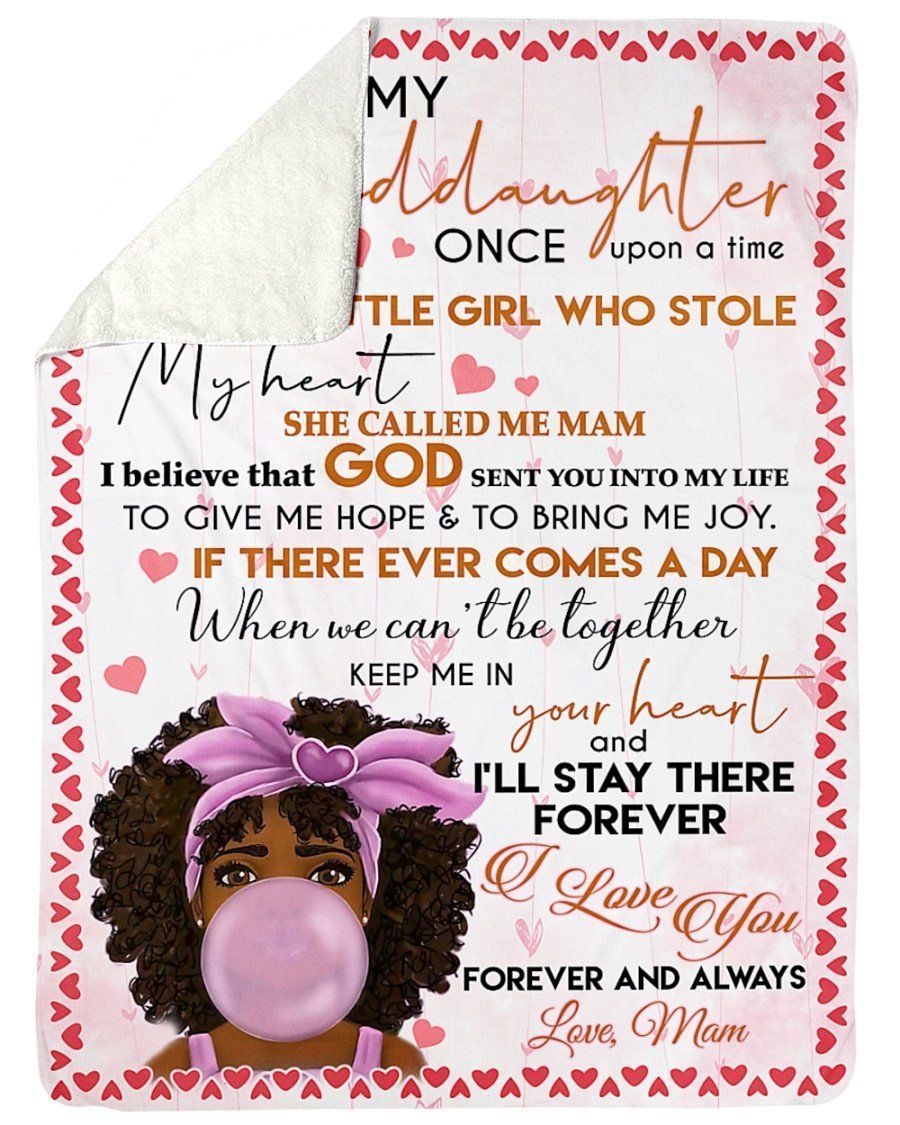 MY
ddaughter
ONCE upon a time
TTLE GIRL WHO STOLE
My heart
SHE CALLED ME MAM
I believe that GOD SENT YOU INTO MY LIFE
TO GIVE ME HOPE & TO BRING ME JOY.
IF THERE EVER COMES A DAY
When we can't be together
KEEP ME IN
your heart
and
I'LL STAY THERE
FOREVER
I Love You
FOREVER AND ALWAYS
Love, Mam